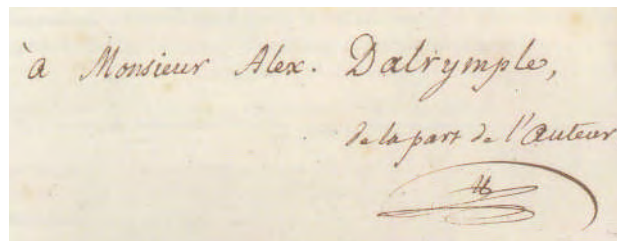 à Monsieur Alex. Dalrymple,
de la part de l'Auteur